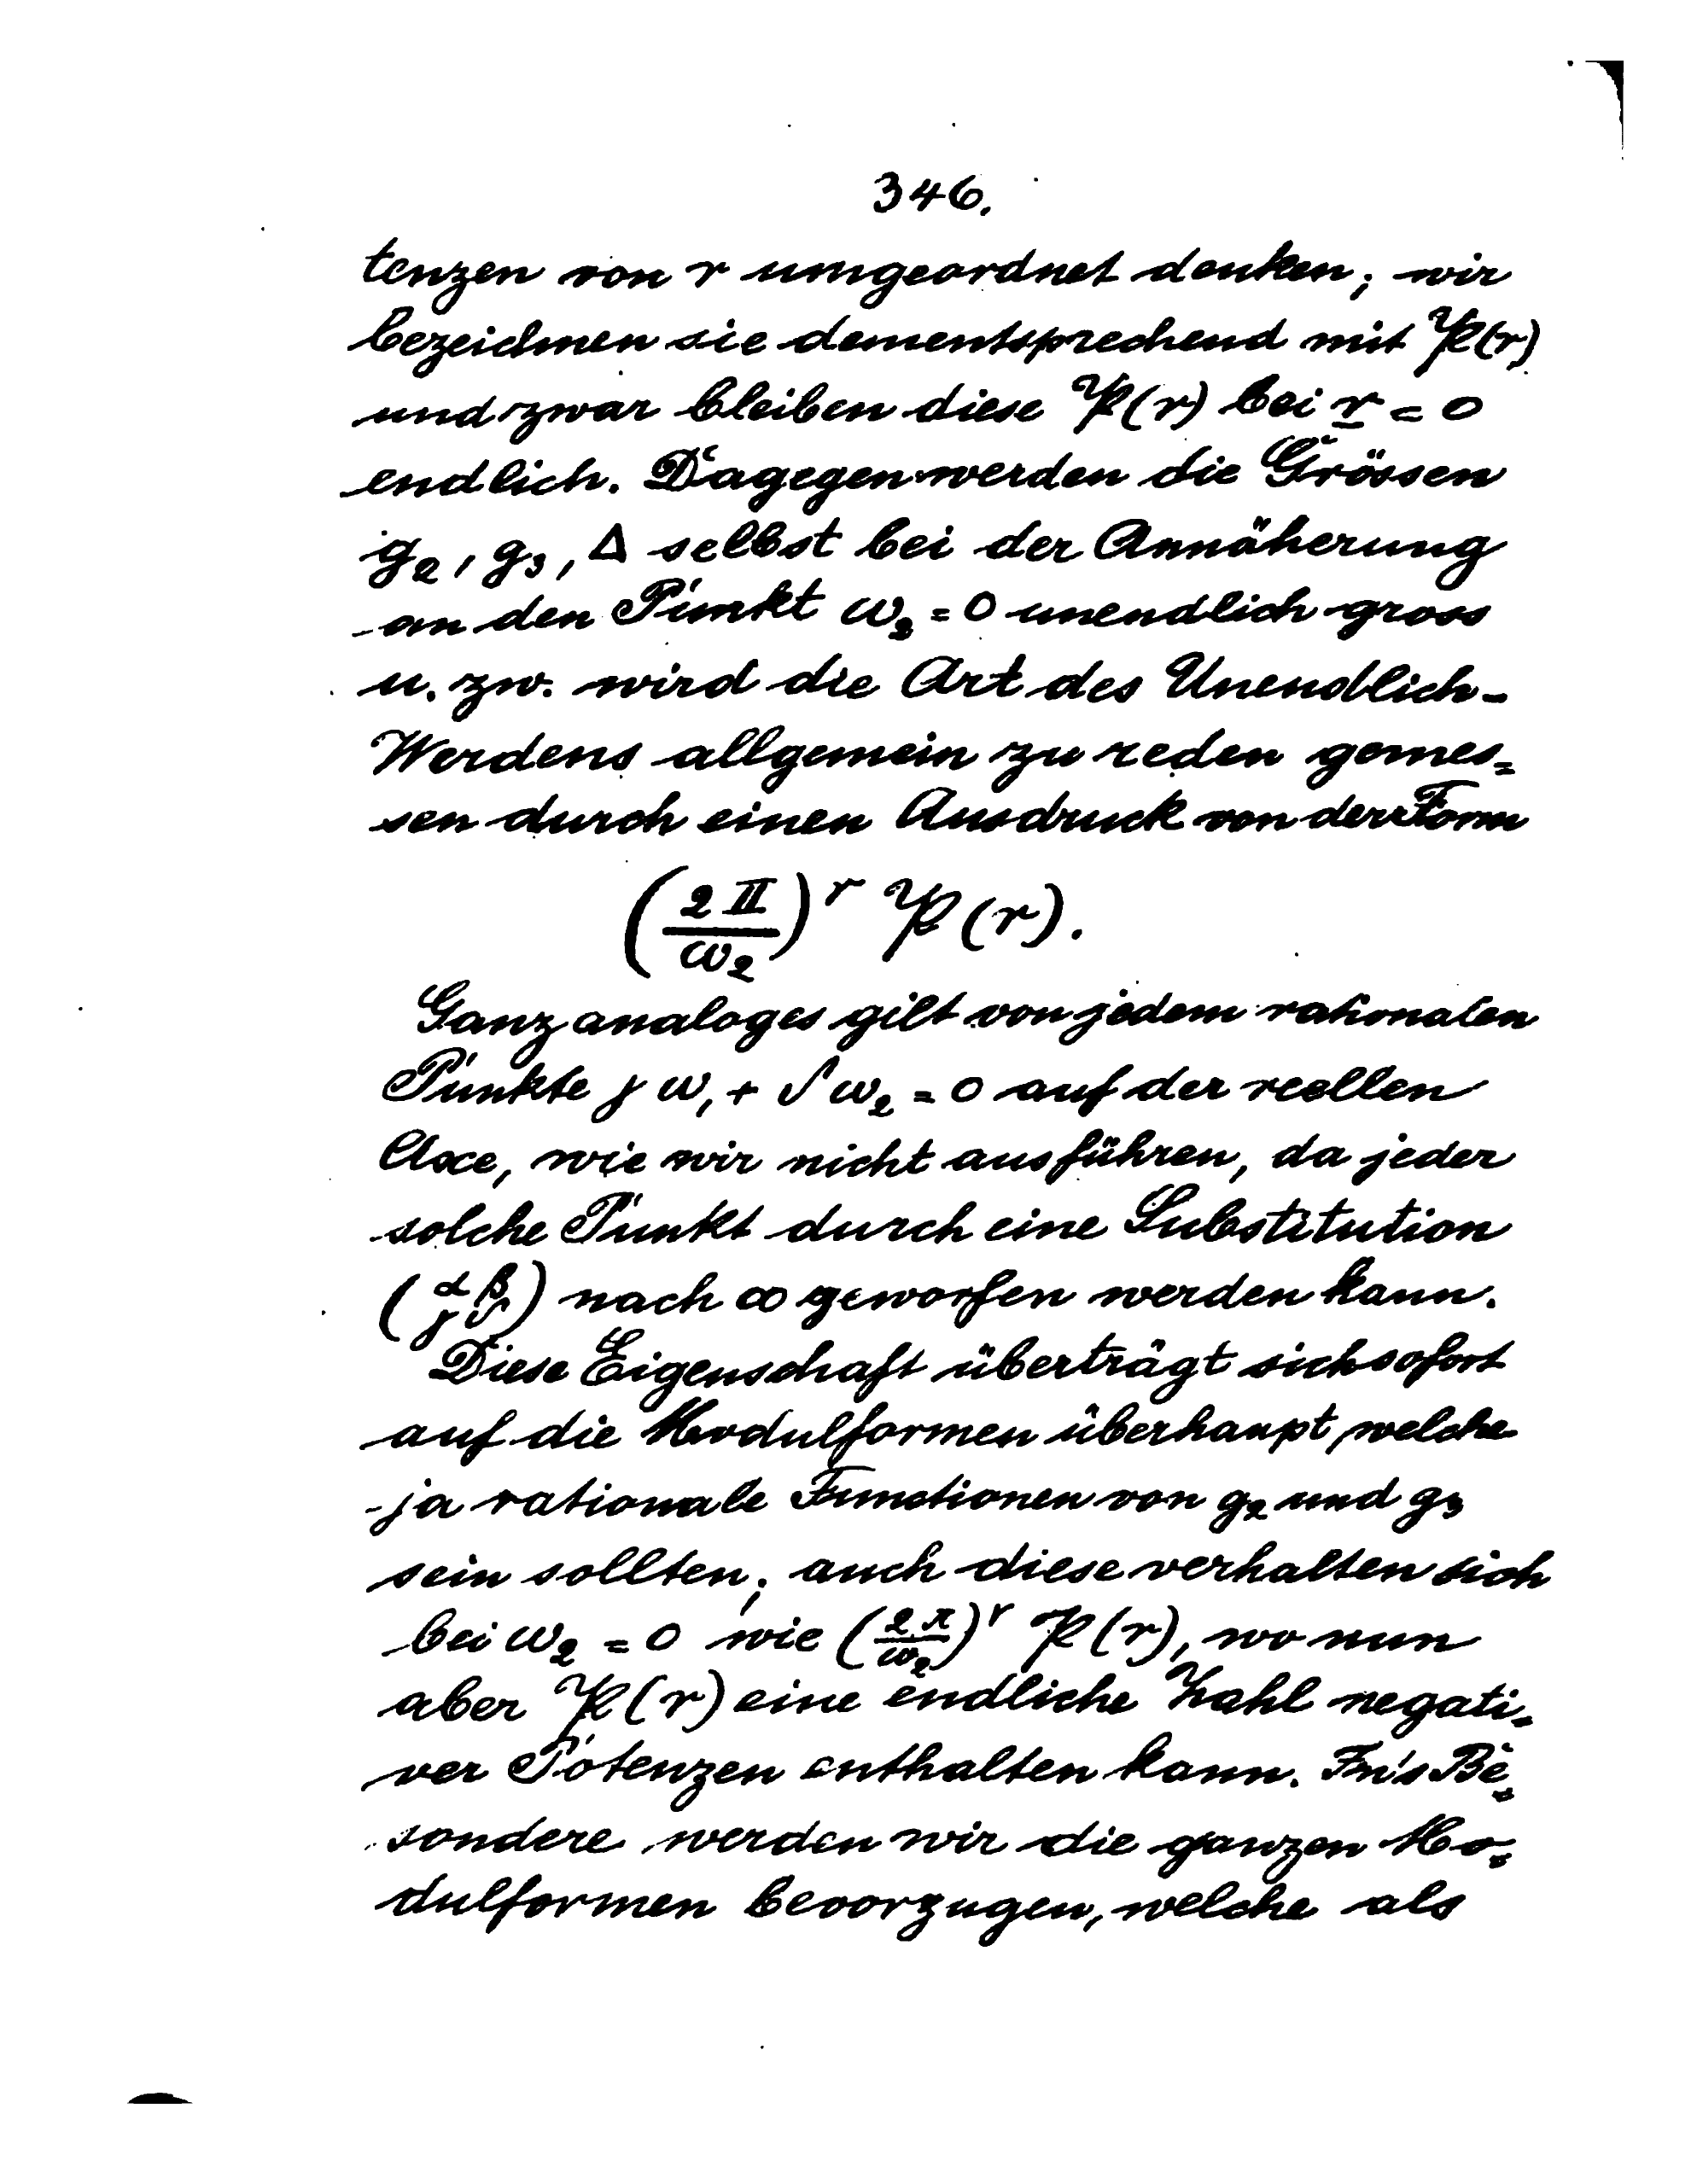 346.
tenzen von r umgeordnet denken; wir
bezeichnen sie dementsprechend mit 𝔓(r)
und zwar bleiben diese 𝔓(r) bei r = 0
endlich. Dagegen werden die Grössen
g₂, g₃, Δ selbst bei der Annäherung
an den Punkt ω₂ = 0 unendlich gross
u. zw. wird die Art des Unendlich-
Werdens allgemein zu reden gemes=
sen durch einen Ausdruck von der Form
(2π/ω₂)^r 𝔓(r).
Ganz analoges gilt von jedem rationalen
Punkte γω₁ + δω₂ = 0 auf der reellen
Axe, wie wir nicht ausführen, da jeder
solche Punkt durch eine Substitution
(α β / γ δ) nach ∞ geworfen werden kann.
Diese Eigenschaft überträgt sich sofort
auf die Modulformen überhaupt, welche
ja rationale Functionen von g₂ und g₃
sein sollten; auch diese verhalten sich
bei ω₂ = 0 wie (2π/ω₂)^r 𝔓(r), wo nun
aber 𝔓(r) eine endliche Zahl negati=
ver Potenzen enthalten kann. In's Be=
sondere werden wir die ganzen Mo=
dulformen bevorzugen, welche als